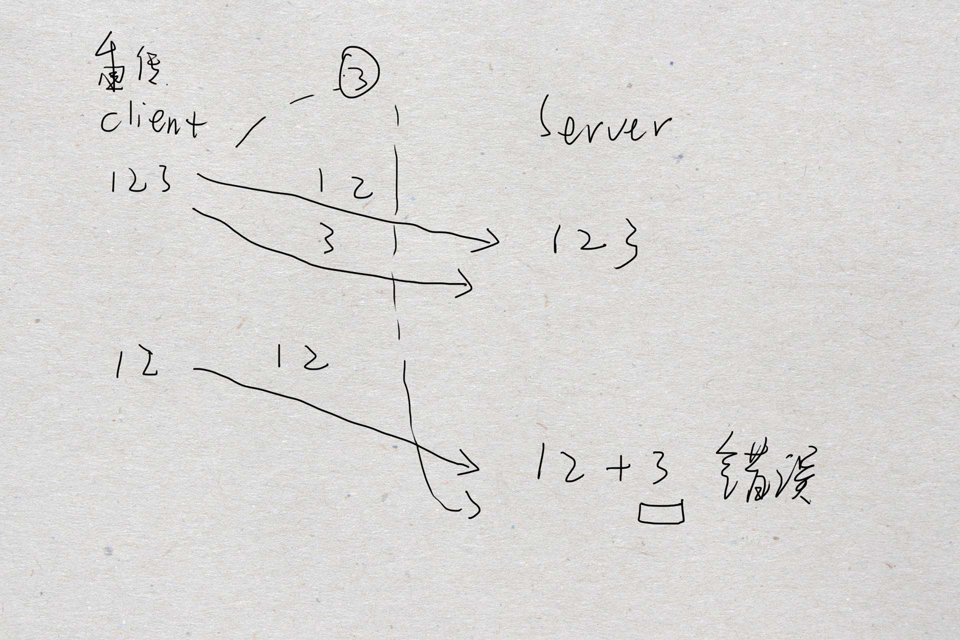 重传
③
client
Server
123
12
3
123
12
12
12+3 错误